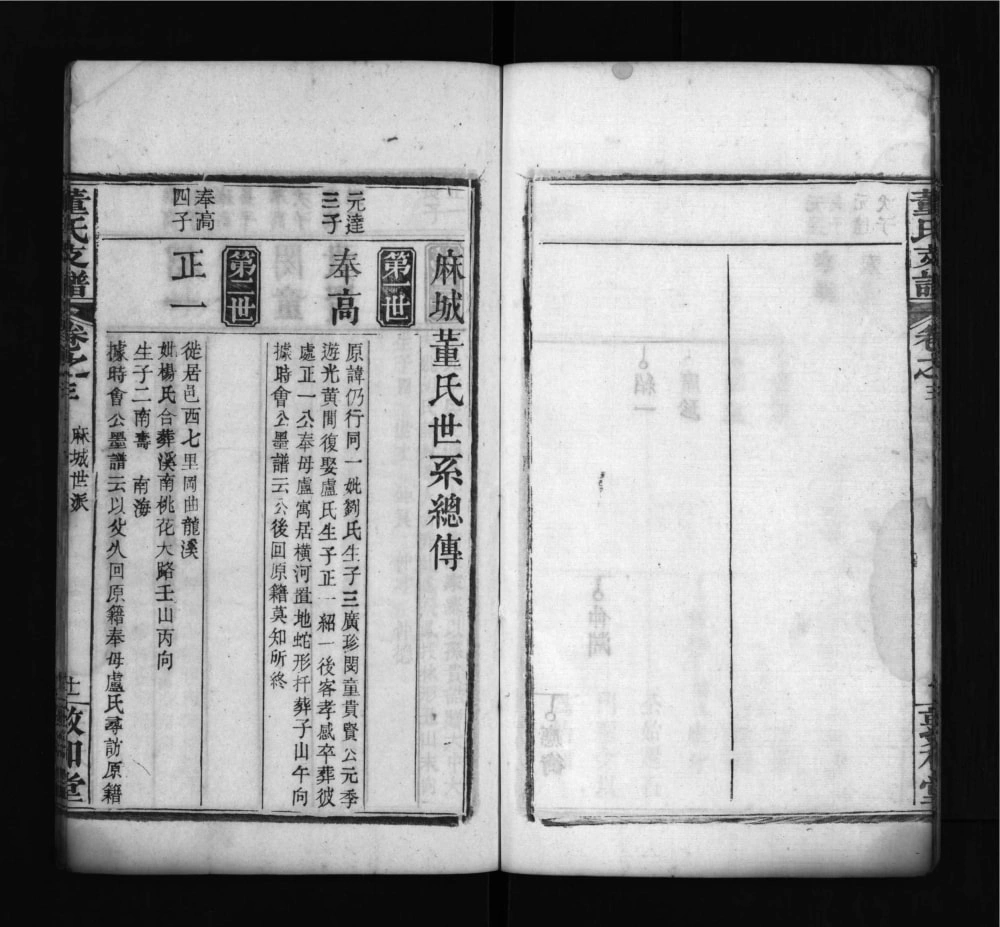 麻城董氏世系總傳
第一世
元達
三子
奉高
原諱仍行同一妣劉氏生子三廣珍閔童貴賢公元季
遊光黃間復娶盧氏生子正一紹一後客孝感卒葬彼
處正一公奉母盧寓居橫河置地蛇形扦葬子山午向
據時會公墨譜云公後回原籍莫知所終
第二世
奉高
四子
正一
徙居邑西七里岡曲龍溪
妣楊氏合葬溪南桃花大路壬山丙向
生子二南壽 南海
據時會公墨譜云以父久回原籍奉母盧氏尋訪原籍
董氏支譜
卷之三
麻城世派
十一
敦和堂